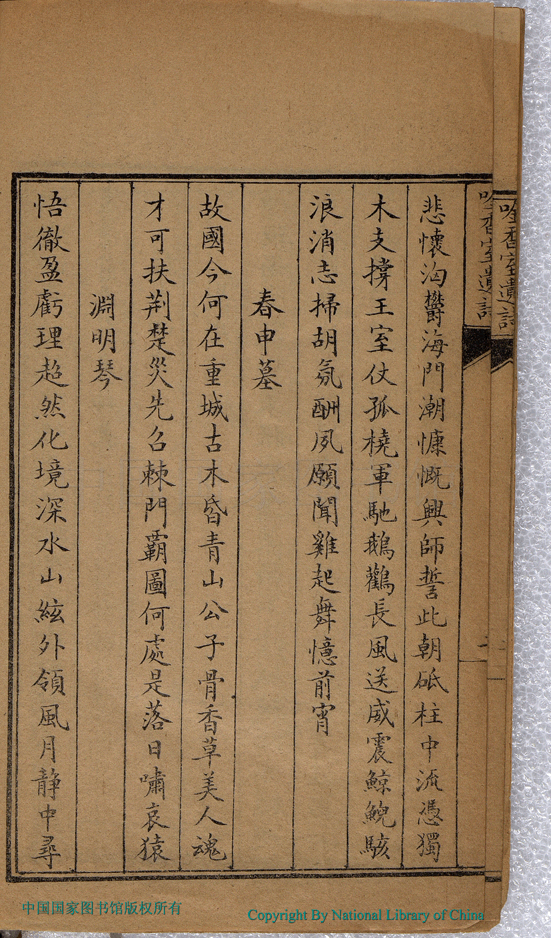 吟香室遺詩
悲懷洶鬱海門潮慷慨興師誓此朝砥柱中流憑獨
木支撐王室仗孤橈軍馳鵝鸛長風送威震鯨鯢駭
浪消志掃胡氛酬夙願聞雞起舞憶前宵
春申墓
故國今何在重城古木昏青山公子骨香草美人魂
才可扶荆楚災先召棘門霸圖何處是落日嘯哀猿
淵明琴
悟徹盈虧理超然化境深水山絃外領風月静中尋
中国国家图书馆版权所有
Copyright By National Library of China